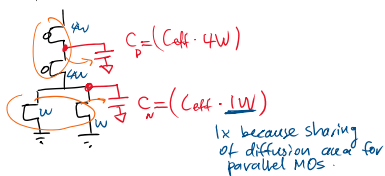 4W
C_P = (Ceff · 4W)
4W
C_N = (Ceff · 1W)
W
W
1x because sharing
of diffusion area for
parallel MOS.